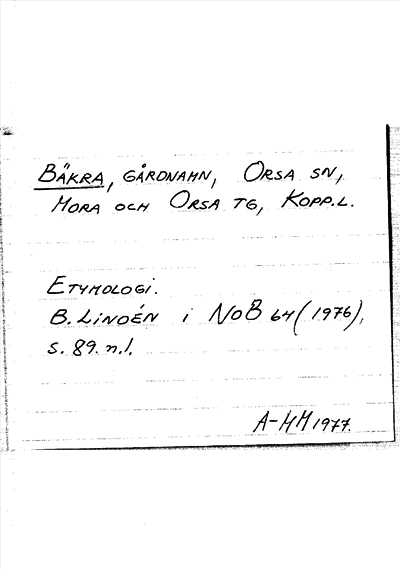 BÄKRA, GÅRDNAMN, ORSA SN,
MORA OCH ORSA TG, KOPP.L.
ETYMOLOGI.
B. LINDÉN i NoB 64 (1976),
s. 89. n.1.
A-MM 1977.